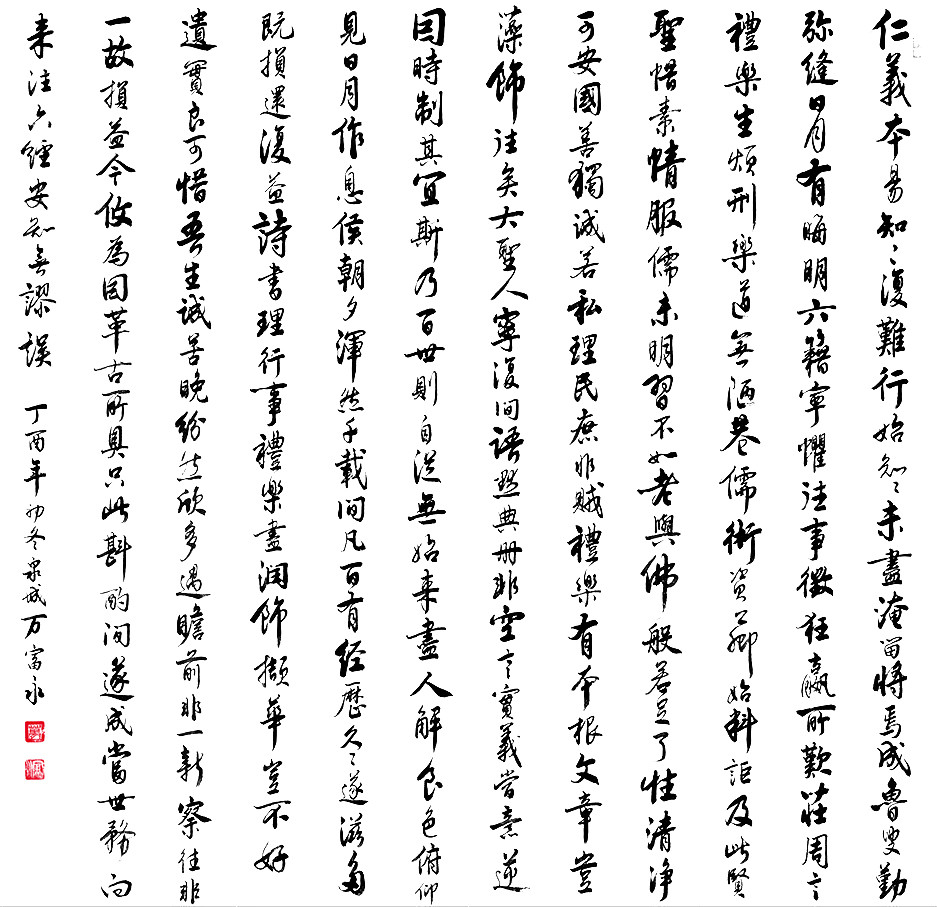 仁義本易知〻復難行始知〻未盡淹留將焉成魯叟勤
弥縫日月有晦明六籍寧懼往事徵狂嬴所歎莊周言
禮樂生煩刑樂道無陋巷儒術資公卿始科詎及此賢
聖惜素情服儒未明習不如老與佛般若足了性清净
可安國善獨诚若私理民庶非賊禮樂有本根文章豈
藻飾往矣大聖人寧復间語默典册非空言實義當意逆
因時制其宜斯乃百世則自從無始来盡人解食色俯仰
見日月作息侯朝夕渾然千載间凡百有經歷久〻遂滋多
既損還復益詩書理行事禮樂盡润飾擷華豈不好
遺實良可惜吾生诚苦晚纷然欣多遇瞻前非一新察往非
一故損益今攸為因革古所具只此斟酌间遂成當世務向
来注六經安知無謬误 丁酉年初冬泉城万富永